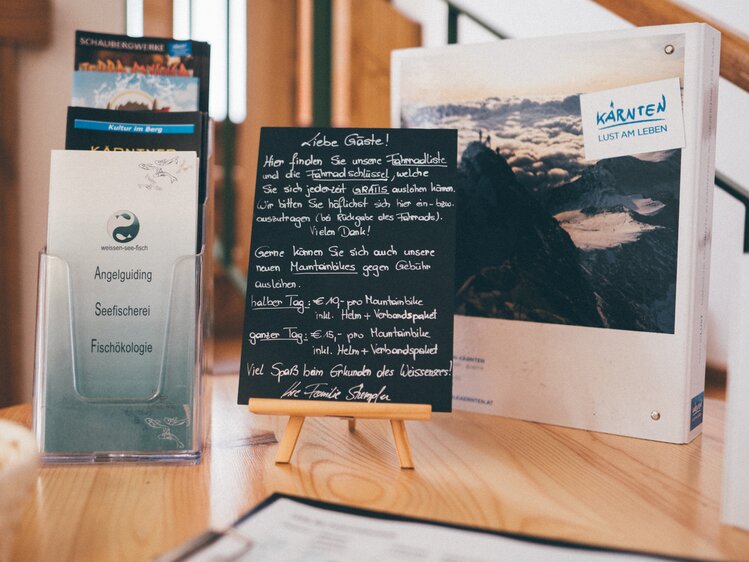 SCHAUBERGWERKE
Kultur im Berg
KÄRNTNER
weissen-see-fisch
Angelguiding
Seefischerei
Fischökologie
Liebe Gäste!
Hier finden Sie unsere Fahrradliste
und die Fahrradschlüssel, welche
Sie sich jederzeit GRATIS ausleihen können.
Wir bitten Sie höflichst sich hier ein- bzw.
auszutragen (bei Rückgabe des Fahrrads).
Vielen Dank!
Gerne können Sie sich auch unsere
neuen Mountainbikes gegen Gebühr
ausleihen.
halber Tag: €10,- pro Mountainbike
inkl. Helm + Verbandspaket
ganzer Tag: €15,- pro Mountainbike
inkl. Helm + Verbandspaket
Viel Spaß beim Erkunden des Weissensees!
Ihre Familie
KÄRNTEN
LUST AM LEBEN